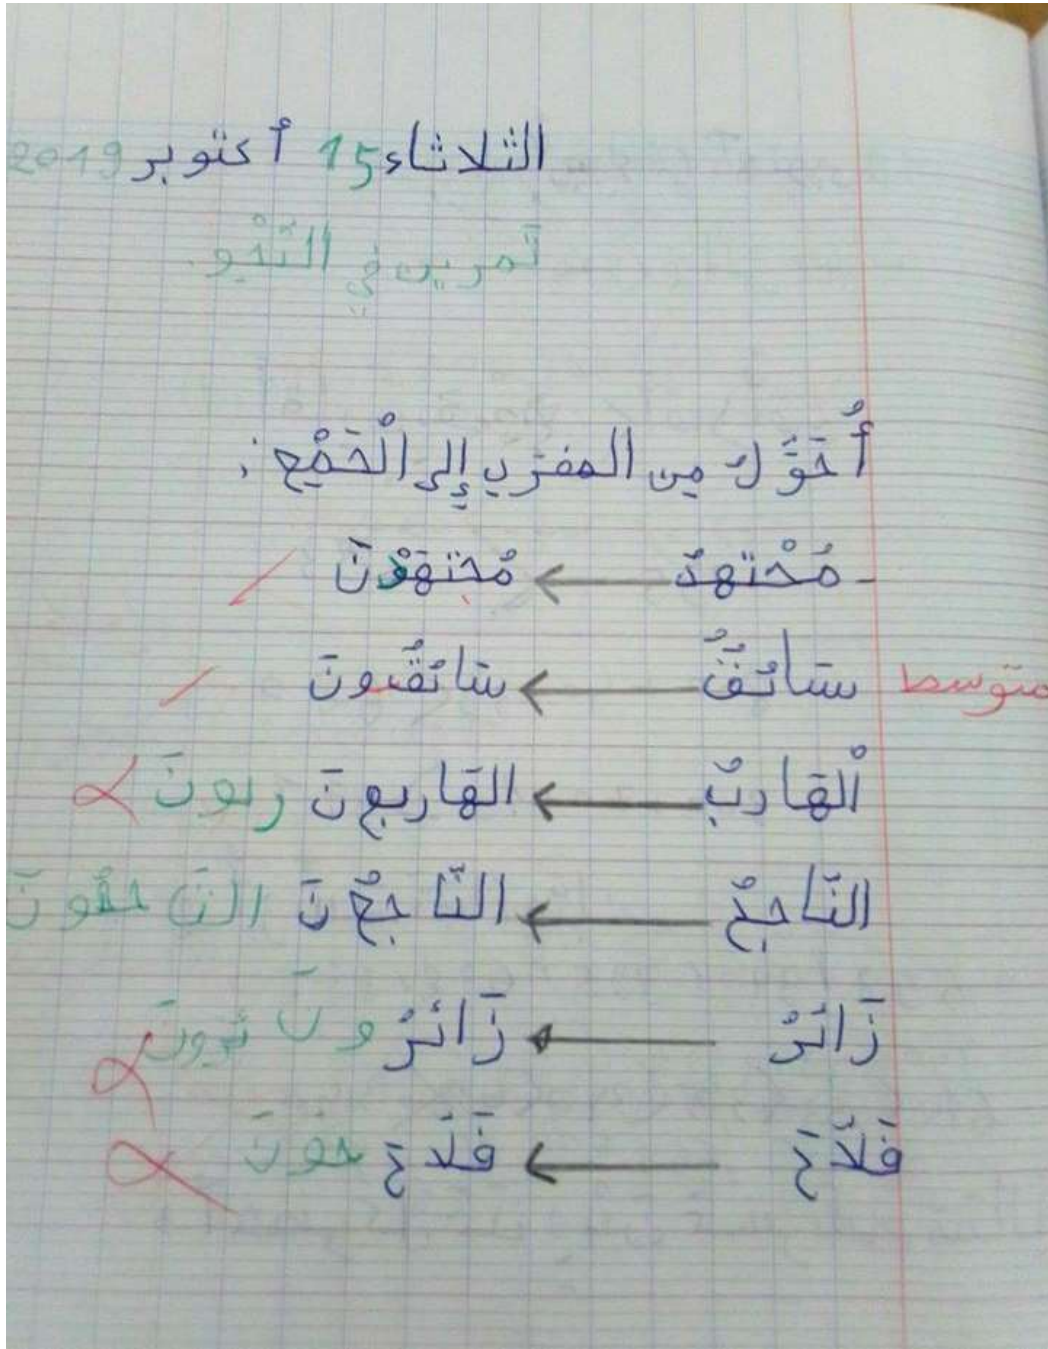 الثلاثاء 15 أكتوبر 2019
تمرين في النَّحْوِ.
أُحَوِّلُ مِن المفرَدِ إِلى الْجَمْعِ :
- مُجْتهدٌ ← مُجتهدُونَ
متوسط سَائقٌ ← سَائقُونَ
ألْهَاربٌ ← الهَاربونَ ربونَ
النَّاجحٌ ← النَّاجحُ نَ النَاجحُونَ
زَائرٌ ← زَائرُ و نَ ئرونَ
فَلاَّحَ ← فَلاَح حُونَ